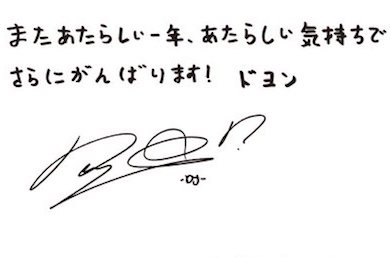 またあたらしい一年、あたらしい気持ちで
さらにがんばります! ドヨン
-DY-